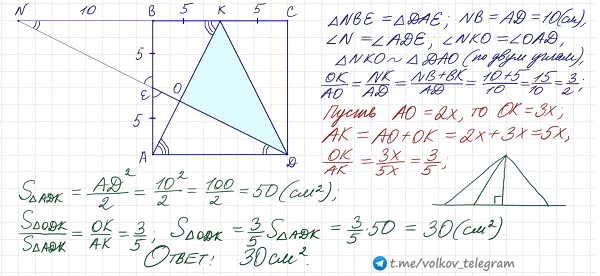 N 10 B 5 K 5 C
5
E O
5
A D
△NBE = △DAE; NB = AD = 10(см),
∠N = ∠ADE, ∠NKO = ∠OAD,
△NKO ~ △DAO (по двум углам),
OK/AO = NK/AD = (NB+BK)/AD = (10+5)/10 = 15/10 = 3/2;
Пусть AO = 2x, то OK = 3x;
AK = AO + OK = 2x + 3x = 5x;
OK/AK = 3x/5x = 3/5;
S△ADK = AD²/2 = 10²/2 = 100/2 = 50 (см²);
S△ODK/S△ADK = OK/AK = 3/5; S△ODK = 3/5 S△ADK = 3/5 · 50 = 30 (см²)
Ответ: 30 см².
t.me/volkov_telegram